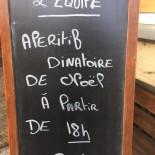 L'ÉQUIPE
APERITIF
DINATOIRE
DE NOËL
À PARTIR
DE 18h